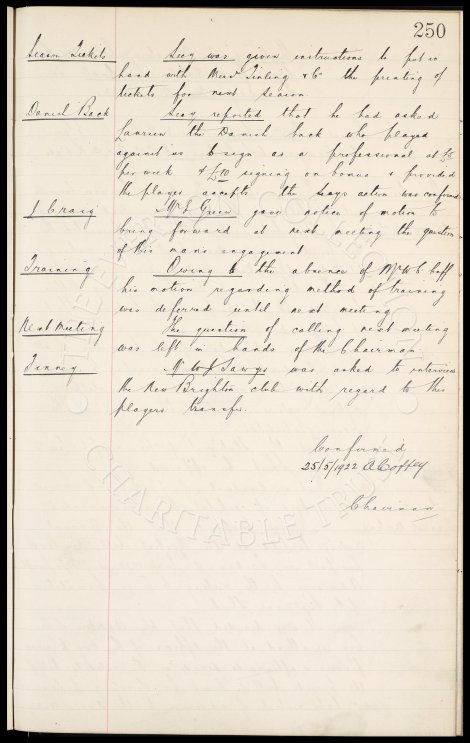 250
Season Tickets Secy was given instructions to put in
hand with Messrs Tinling & Co the printing of
tickets for next season
Danish Back Secy reported that he had asked
the Danish back who played
against us to sign as a professional at £5
per week & £10 signing on bonus & provided
the player accepts the Secys action was confirmed
J Craig Mr E Green gave notice of motion to
bring forward at next meeting the question
of this mans engagement
Training Owing to the absence of Mr W C Cuff
his motion regarding method of training
was deferred until next meeting
Next Meeting The question of calling next meeting
was left in hands of the Chairman.
Finney Mr W J Sawyer was asked to interview
the New Brighton club with regard to this
players transfer.
Confirmed
25/5/1922 A Coffey
Chairman
THE EVERTON COLLECTION
CHARITABLE TRUST